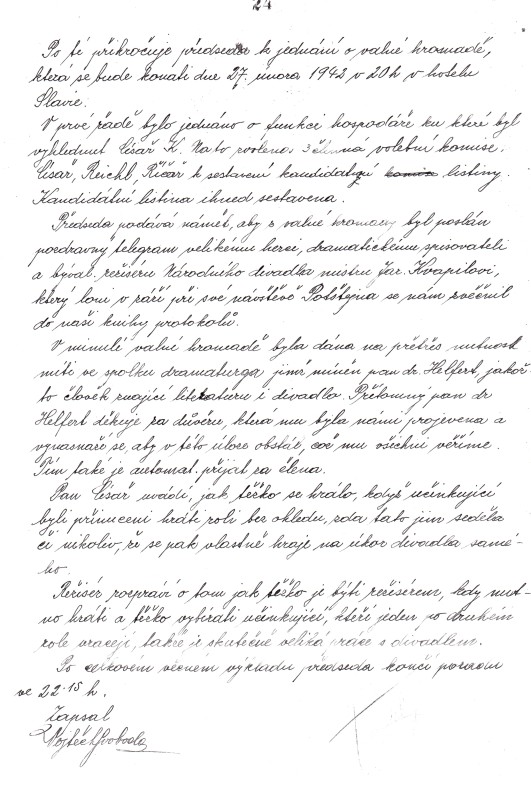 24
Po té přikročuje předseda k jednání o valné hromadě,
která se bude konati dne 27. února 1942 v 20h v hotelu
Slavie.
V prvé řadě bylo jednáno o funkci hospodáře ku které byl
vyhlédnut Císař K. Na to zvolena 3 členná volební komise:
Císař, Reichl, Říčář k sestavení kandidatní listiny.
Kandidátní listina ihned sestavena.
Předseda podává námět, aby z valné hromady byl poslán
pozdravný telegram velikému herci, dramatickému spisovateli
a býval. režiséru Národního divadla mistru Jar. Kvapilovi,
který loni v září při své návštěvě Potštejna se nám zvěčnil
do naší knihy protokolů.
V minulé valné hromadě byla dána na přetřes nutnost
míti ve spolku dramaturga jímž míněn pan dr. Helfert, jakož-
to člověk znající literaturu i divadla. Přítomný pan dr
Helfert děkuje za důvěru, která mu byla námi projevena a
vynasnaží se, aby v této úloze obstál, což mu všichni věříme.
Tím také je automat. přijat za člena.
Pan Císař uvádí, jak těžko se hrálo, když účinkující
byli přinuceni hráti roli bez ohledu, zda tato jim seděla
či nikoliv, že se pak vlastně hraje na úkor divadla samé-
ho.
Režisér rozpráví o tom jak těžko je býti režisérem, kdy nut-
no hráti a těžko vybírati účinkující, kteří jeden po druhém
role vracejí, takže je skutečně veliká práce s divadlem.
Po celkovém věcném výkladu předseda končí poradu
ve 22.15 h.
Zapsal
Vojtěch Svoboda